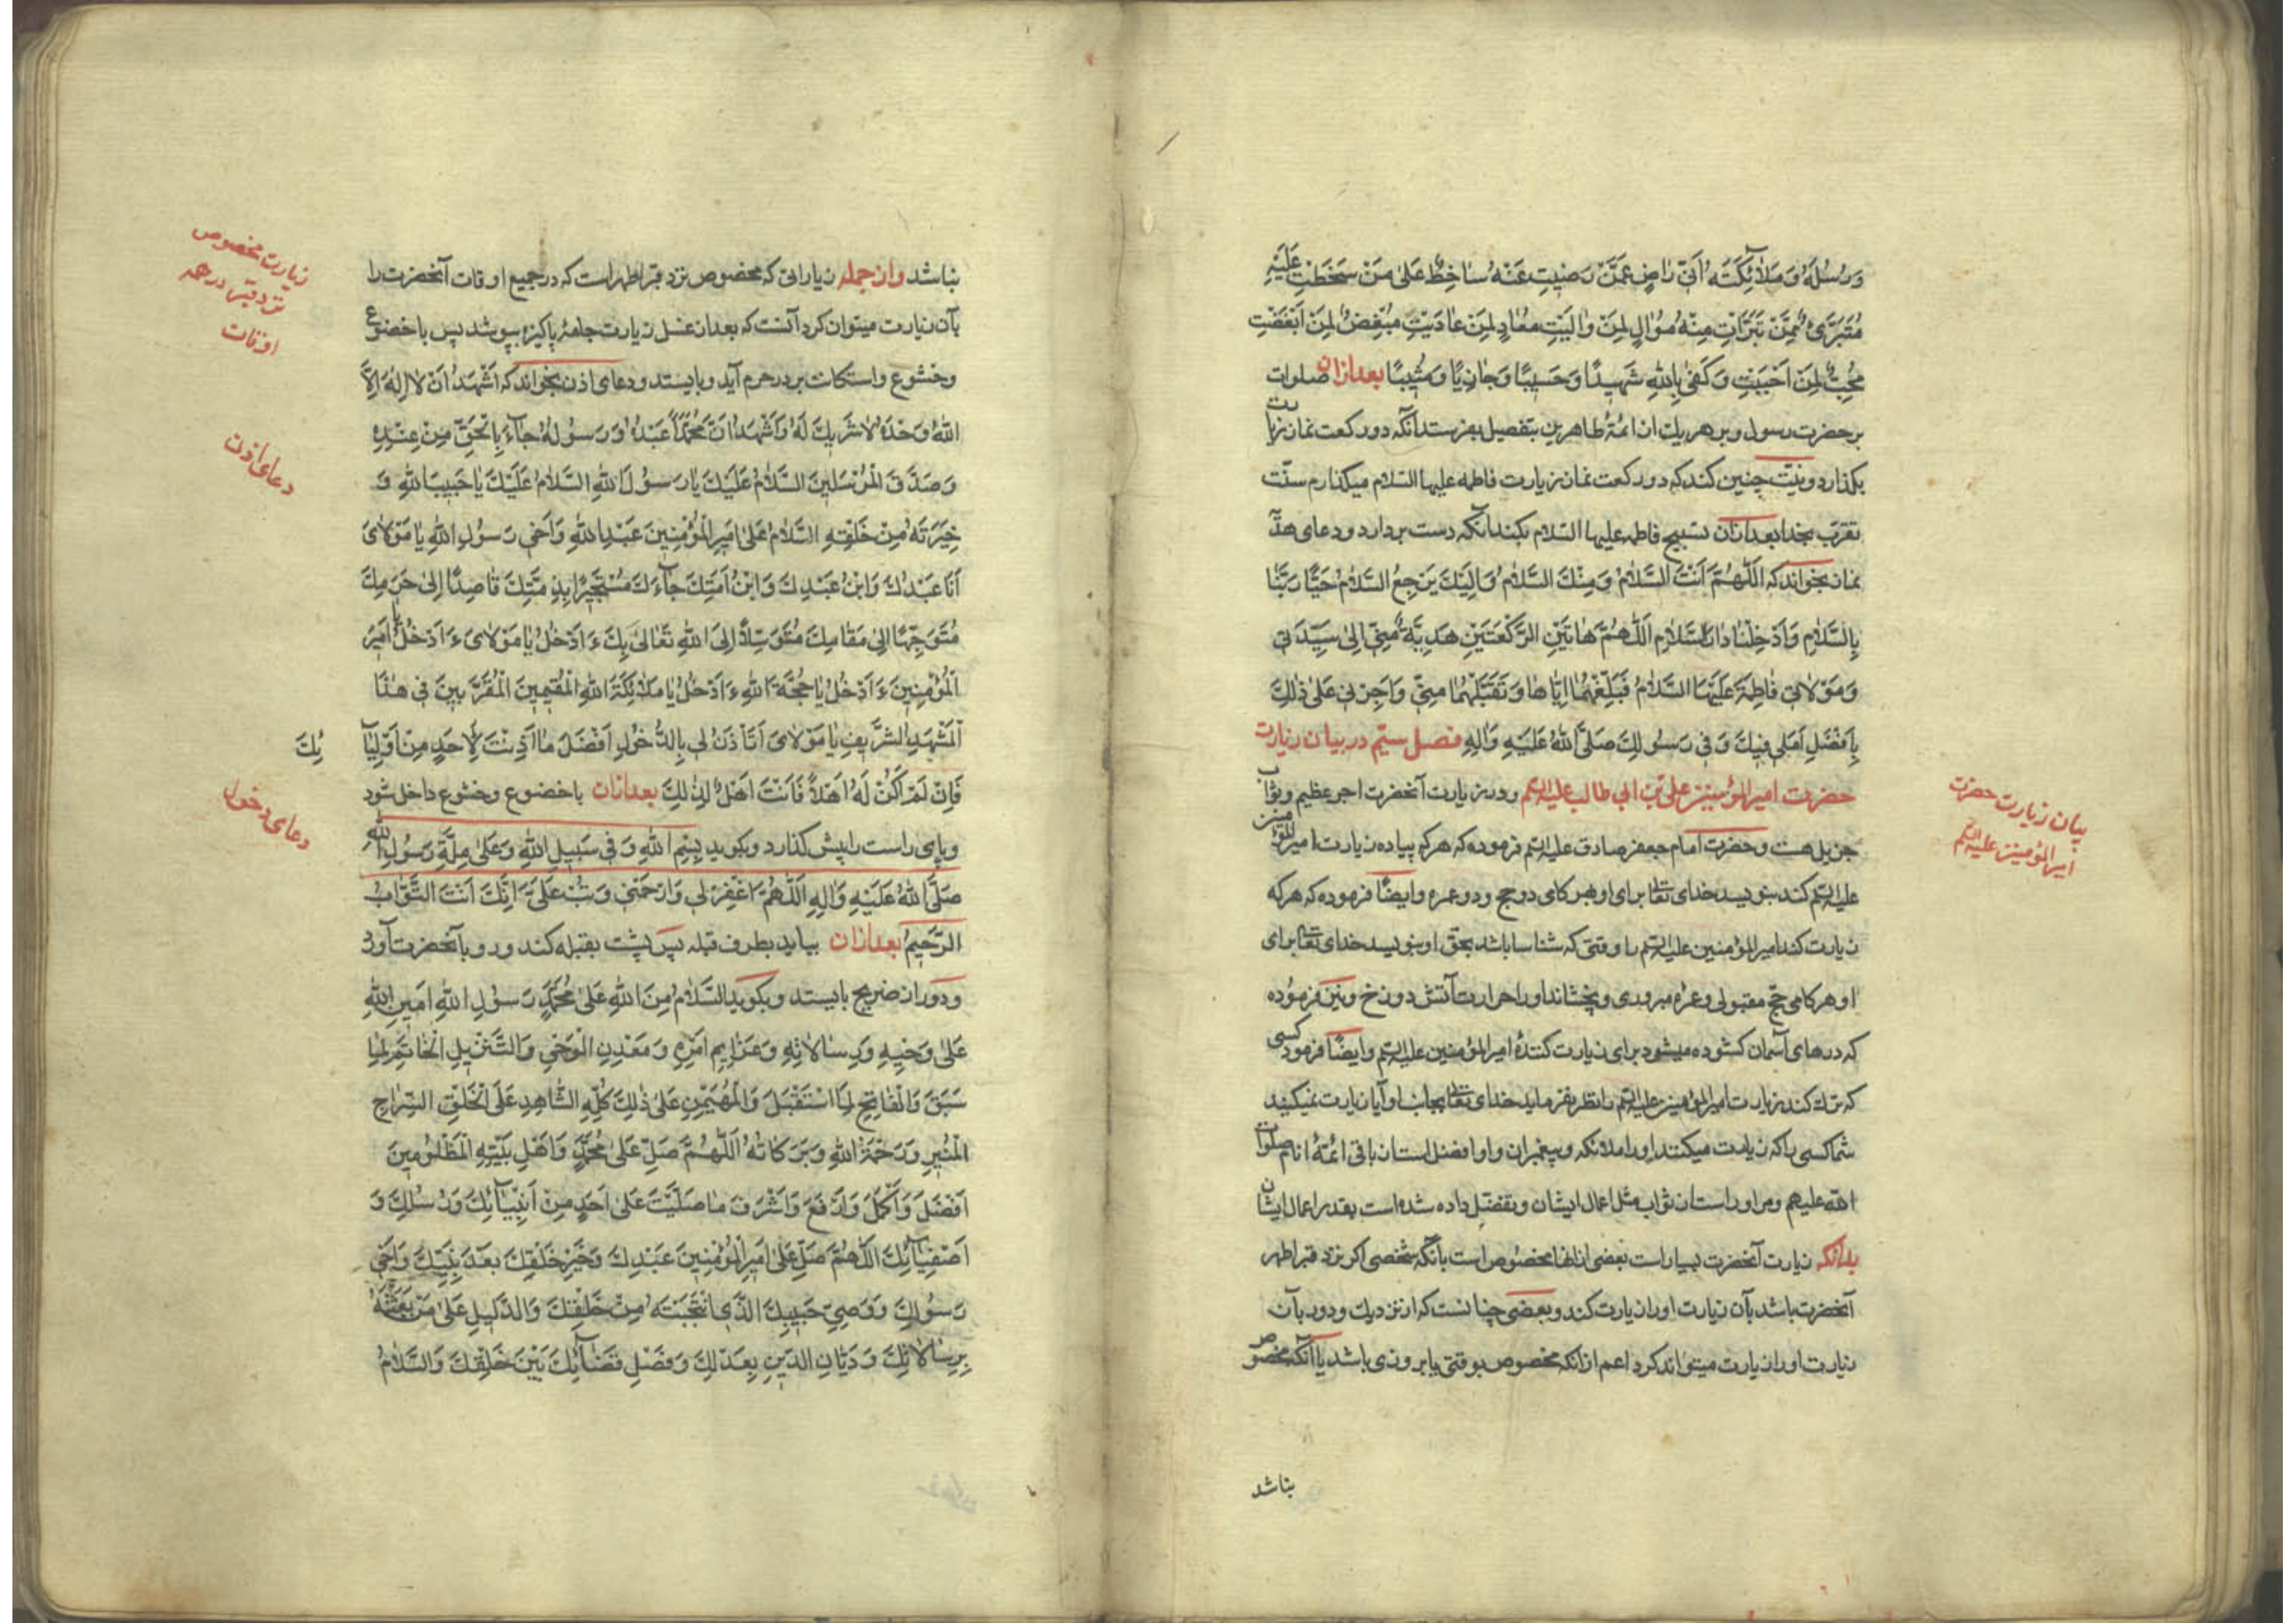 وَرُسُلَهُ وَمَلَائِكَتَهُ اَنّي رَاضٍ عَمَّنْ رَضِيتِ عَنْهُ سَاخِطٌ عَلى مَنْ سَخَطْتِ عَلَيْهِ
مُتَبَرِّئٌ مِمَّنْ تَبَرَّأْتِ مِنْهُ مُوَالٍ لِمَنْ وَالَيْتِ مُعَادٍ لِمَنْ عَادَيْتِ مُبْغِضٌ لِمَنْ اَبْغَضْتِ
مُحِبٌّ لِمَنْ اَحْبَبْتِ وَكَفى بِاللهِ شَهِيدًا وَحَسِيبًا وَجَازِيًا وَمُثِيبًا بعدازان صلوات
بر حضرت رسول و بر هریك از ائمۀ طاهرین بتفصیل بفرستد آنگه دو ركعت نماز زیارت
بكذارد و نیّت چنین كند كه دو ركعت نماز زیارت فاطمه علیها السّلام میكذارم سنّت
تقرّب بخدا بعدازان تسبیح فاطمه علیها السّلام بكند آنگه دست بردارد و دعای هدیّۀ
نماز بخواند كه اَللّهُمَّ اَنْتَ السَّلَامُ وَمِنْكَ السَّلَامُ وَاِلَيْكَ يَرْجِعُ السَّلَامُ حَيِّنَا رَبَّنَا
بِالسَّلَامِ وَاَدْخِلْنَا دَارَ السَّلَامِ اَللّهُمَّ هَاتَيْنِ الرَّكْعَتَيْنِ هَدِيَّةٌ مِنّي اِلى سَيِّدَتي
وَمَوْلَاتي فَاطِمَةَ عَلَيْهَا السَّلَامُ فَبَلِّغْهُمَا اِيَّاهَا وَتَقَبَّلْهُمَا مِنّي وَاَجِرْني عَلى ذلِكَ
بِاَفْضَلِ اَمَلي فِيكَ وَفي رَسُولِكَ صَلَّى اللهُ عَلَيْهِ وَالِهِ فصل سیّم در بیان زیارت
حضرت امیر المؤمنین علی بن ابی طالب علیه السّلم و در زیارت آنحضرت اجر عظیم و ثواب
جزیل هست و حضرت امام جعفر صادق علیه السّلم فرموده كه هر كه پیاده زیارت امیر المؤمنین
علیه السّلم كند بنویسد خدای تعالى برای او بهر كامی دو حج و دو عمره و ایضًا فرموده كه هر كه
زیارت كند امیر المؤمنین علیه السّلم را وقتی كه شناسا باشد بحقّ او بنویسد خدای تعالى برای
او هر كامی حجّ مقبولی و عمرۀ مبروری و نچشاند او را حرارت آتش دوزخ و نیز فرموده
كه درهای آسمان كشوده میشود برای زیارت كنندۀ امیر المؤمنین علیه السّلم و ایضًا فرمود كسی
كه ترك كند زیارت امیر المؤمنین علیه السّلم را نظر نفرماید خدای تعالى بجانب او آیا زیارت نمیكنید
شما كسی را كه زیارت میكنند او را ملائكه و پیغمبران و او افضل است از باقی ائمّۀ انام صلوات
الله علیهم و مر او راست از ثواب مثل اعمال ایشان و تفضیل داده شده است بقدر اعمال ایشان
بدانكه زیارت آنحضرت بسیار است بعضی ازانها مخصوص است بآنكه شخصی اكر نزد قبر اطهر
آنحضرت باشد بآن زیارت او را زیارت كند و بعضی چنانست كه از نزدیك و دور بآن
زیارت او را زیارت میتواند كرد اعم ازانكه مخصوص بوقتی یا بروزی باشد یا آنكه مخصوص
نباشد
بیان زیارت حضرت
امیر المؤمنین علیه السّلم
نباشد وازجمله زیاراتی كه مخصوص نزد قبر اطهر است كه در جمیع اوقات آنحضرت را
بآن زیارت میتوان كرد آنست كه بعد از غسل زیارت جامۀ پاكیزه بپوشد پس باخضوع
وخشوع و استكانت بر در حرم آید و بایستد و دعای اذن بخواند كه اَشْهَدُ اَنْ لَا اِلهَ اِلَّا
اللهُ وَحْدَهُ لَا شَرِيكَ لَهُ وَاَشْهَدُ اَنَّ مُحَمَّدًا عَبْدُهُ وَرَسُولُهُ جَاءَ بِالْحَقِّ مِنْ عِنْدِهِ
وَصَدَّقَ الْمُرْسَلِينَ السَّلَامُ عَلَيْكَ يَا رَسُولَ اللهِ السَّلَامُ عَلَيْكَ يَا حَبِيبَ اللهِ وَ
خِيَرَتَهُ مِنْ خَلْقِهِ السَّلَامُ عَلى اَمِيرِ الْمُؤْمِنِينَ عَبْدِ اللهِ وَاَخي رَسُولِ اللهِ يَا مَوْلَايَ
اَنَا عَبْدُكَ وَابْنُ عَبْدِكَ وَابْنُ اَمَتِكَ جَاءَكَ مُسْتَجِيرًا بِذِمَّتِكَ قَاصِدًا اِلى حَرَمِكَ
مُتَوَجِّهًا اِلى مَقَامِكَ مُتَوَسِّلًا اِلَى اللهِ تَعَالى بِكَ ءَاَدْخُلُ يَا مَوْلَايَ ءَاَدْخُلُ يَا اَمِيرَ
الْمُؤْمِنِينَ ءَاَدْخُلُ يَا حُجَّةَ اللهِ ءَاَدْخُلُ يَا مَلَائِكَةَ اللهِ الْمُقِيمِينَ الْمُقَرَّبِينَ في هذَا
الْمَشْهَدِ الشَّرِيفِ يَا مَوْلَايَ اَتَأْذَنُ لي بِالدُّخُولِ اَفْضَلَ مَا اَذِنْتَ لِاَحَدٍ مِنْ اَوْلِيَائِكَ
فَاِنْ لَمْ اَكُنْ لَهُ اَهْلًا فَاَنْتَ اَهْلٌ لِذلِكَ بعدازان باخضوع و خشوع داخل شود
وپای راست را پیش كذارد و بكوید بِسْمِ اللهِ وَفي سَبِيلِ اللهِ وَعَلى مِلَّةِ رَسُولِ اللهِ
صَلَّى اللهُ عَلَيْهِ وَالِهِ اَللّهُمَّ اغْفِرْ لي وَارْحَمْني وَتُبْ عَلَيَّ اِنَّكَ اَنْتَ التَّوَّابُ
الرَّحِيمُ بعدازان بیاید بطرف قبله پس پشت بقبله كند و رو بآنحضرت آورد
و دور از ضریح بایستد و بكوید السَّلَامُ مِنَ اللهِ عَلى مُحَمَّدٍ رَسُولِ اللهِ اَمِينِ اللهِ
عَلى وَحْيِهِ وَرِسَالَاتِهِ وَعَزَائِمِ اَمْرِهِ وَمَعْدِنِ الْوَحْيِ وَالتَّنْزِيلِ الْخَاتِمِ لِمَا
سَبَقَ وَالْفَاتِحِ لِمَا اسْتَقْبَلَ وَالْمُهَيْمِنِ عَلى ذلِكَ كُلِّهِ الشَّاهِدِ عَلَى الْخَلْقِ السِّرَاجِ
الْمُنِيرِ وَرَحْمَةُ اللهِ وَبَرَكَاتُهُ اَللّهُمَّ صَلِّ عَلى مُحَمَّدٍ وَاَهْلِ بَيْتِهِ الْمَظْلُومِينَ
اَفْضَلَ وَاَكْمَلَ وَاَرْفَعَ وَاَشْرَفَ مَا صَلَّيْتَ عَلى اَحَدٍ مِنْ اَنْبِيَائِكَ وَرُسُلِكَ وَ
اَصْفِيَائِكَ اَللّهُمَّ صَلِّ عَلى اَمِيرِ الْمُؤْمِنِينَ عَبْدِكَ وَخَيْرِ خَلْقِكَ بَعْدَ نَبِيِّكَ وَاَخي
رَسُولِكَ وَوَصِيِّ حَبِيبِكَ الَّذِي انْتَجَبْتَهُ مِنْ خَلْقِكَ وَالدَّلِيلِ عَلى مَنْ بَعَثْتَهُ
بِرِسَالَاتِكَ وَدَيَّانِ الدّينِ بِعَدْلِكَ وَفَصْلِ قَضَائِكَ بَيْنَ خَلْقِكَ وَالسَّلَامُ
زیارت مخصوص
نزد قبر در همه
اوقات
دعای اذن
دعای دخول